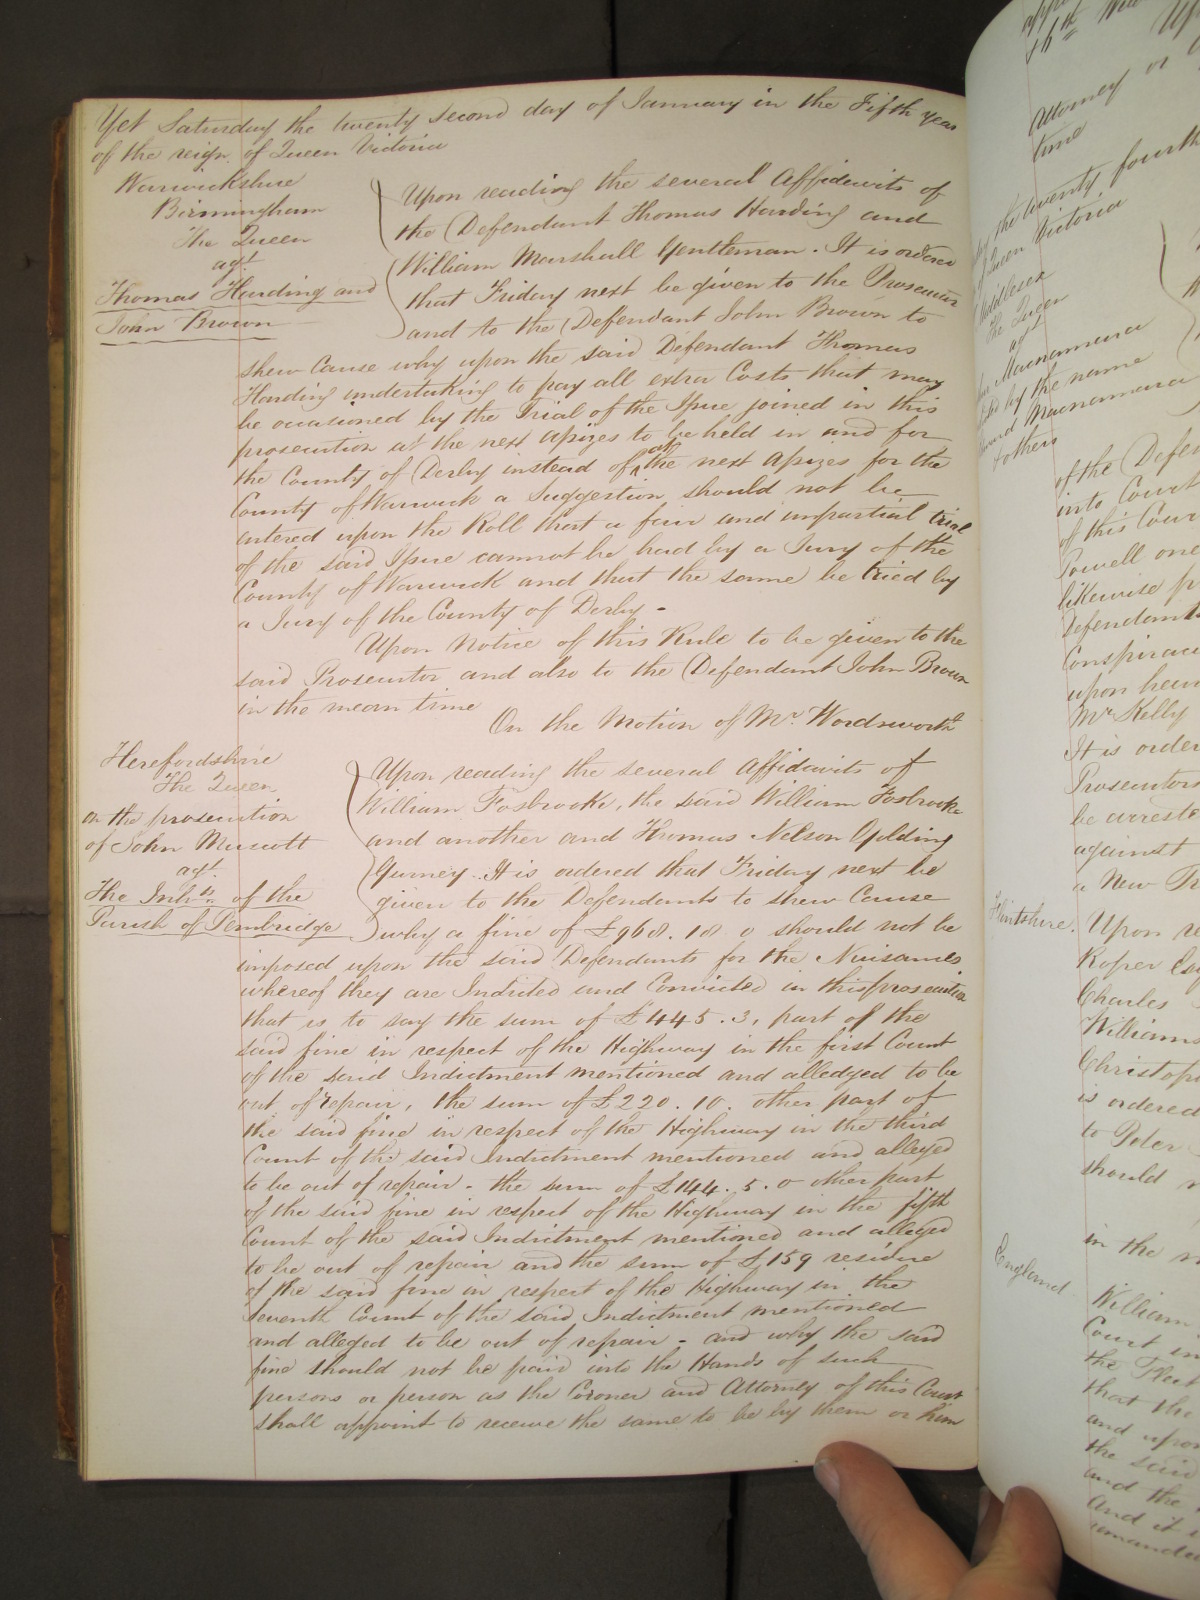 Yet Saturday the twenty second day of January in the Fifth year
of the reign of Queen Victoria
Warwickshire
Birmingham
The Queen
agt
Thomas Harding and
John Brown
Upon reading the several Affidavits of
the Defendant Thomas Harding and
William Marshall Gentleman. It is ordered
that Friday next be given to the Prosecutor
and to the Defendant John Brown to
shew Cause why upon the said Defendant Thomas
Harding undertaking to pay all extra Costs that may
be occasioned by the Trial of the Issue joined in this
prosecution at the next Assizes to be held in and for
the County of Derby instead of at the next Assizes for the
County of Warwick a Suggestion should not be
entered upon the Roll that a fair and impartial trial
of the said Issue cannot be had by a Jury of the
County of Warwick and that the same be tried by
a Jury of the County of Derby -
Upon Notice of this Rule to be given to the
said Prosecutor and also to the Defendant John Brown
in the mean time
On the Motion of Mr. Wordsworth
Herefordshire
The Queen
on the prosecution
of John Muscott
agt.
The Inhts. of the
Parish of Pembridge
Upon reading the several Affidavits of
William Fosbrooke, the said William Fosbrooke
and another and Thomas Nelson Golding
Gurney. It is ordered that Friday next be
given to the Defendants to shew Cause
why a fine of £968. 18. 0 should not be
imposed upon the said Defendants for the Nuisances
whereof they are Indicted and Convicted in this prosecution
that is to say the sum of £445. 3, part of the
said fine in respect of the Highway in the first Count
of the said Indictment mentioned and alledged to be
out of repair, the sum of £220. 10. other part of
the said fine in respect of the Highway in the third
Count of the said Indictment mentioned and alleged
to be out of repair - the sum of £144. 5. 0 other part
of the said fine in respect of the Highway in the fifth
Count of the said Indictment mentioned and alleged
to be out of repair and the sum of £159 residue
of the said fine in respect of the Highway in the
Seventh Count of the said Indictment mentioned
and alleged to be out of repair - and why the said
fine should not be paid into the Hands of such
persons or person as the Coroner and Attorney of this Court
shall appoint to receive the same to be by them or him
16th
Attorney or
time
the twenty fourth
Queen Victoria
Middlesex
The Queen
agt
Macnamara
by the name
Macnamara
& others
of the Defen
into Court
of this Cour
Powell one
likewise p
Defendants
Conspirac
upon hear
Mr. Kelly
It is order
Prosecutors
be arreste
against
a New
Flintshire.
Upon re
Roper Esq
Charles
Williams
Christoph
is ordered
to Peter
should n
in the m
England
William
Court in
the Fleet
that the
and upon
the said
and the
And it i
remanded